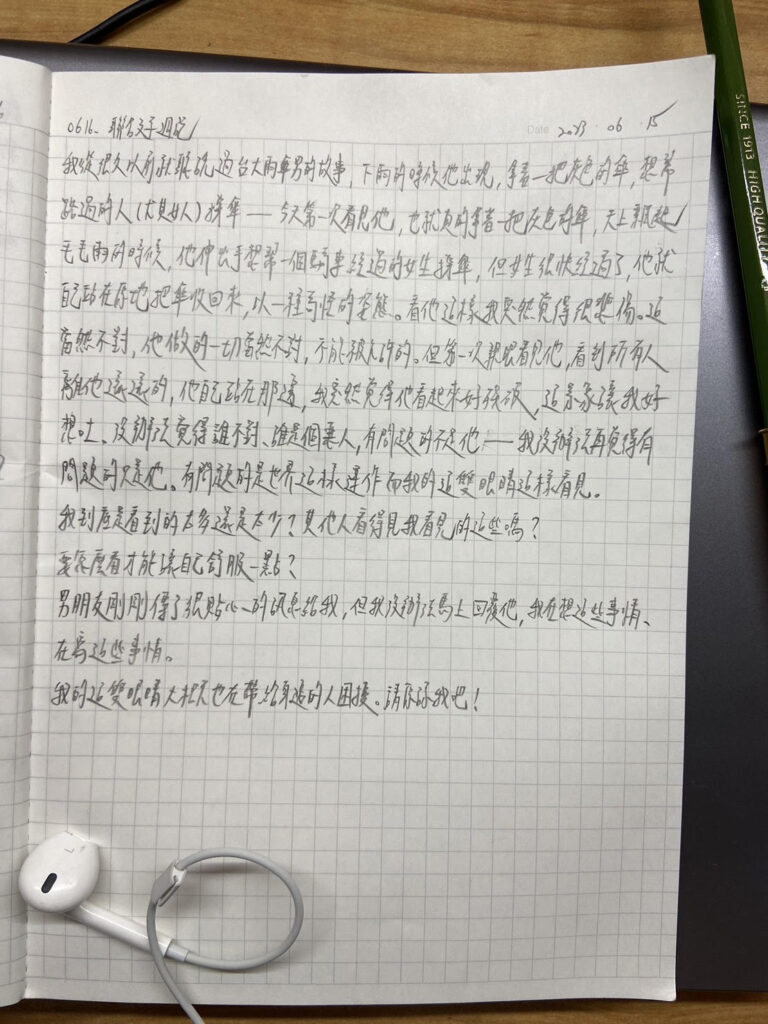 0616. 聯合文學週記
Date 2023 . 06 . 15
我從很久以前就聽說過台大雨傘男的故事,下雨的時候他出現,拿著一把灰色的傘,想幫
路過的人(尤其女人)撐傘——今天第一次看見他,也就真的拿著一把灰色的傘,天上飄起
毛毛雨的時候,他伸出手想幫一個騎車經過的女生撐傘,但女生很快經過了,他就
自己站在原地把傘收回來,以一種奇怪的姿態。看他這樣我突然覺得很悲傷。這
當然不對,他做的一切當然不對,不能被允許的。但第一次親眼看見他,看到所有人
離他遠遠的,他自己站在那邊,我竟然覺得他看起來好殘破,這景象讓我好
想吐、沒辦法覺得誰不對、誰是個壞人,有問題的不是他——我沒辦法再覺得有
問題的只是他。有問題的是世界這樣運作而我的這雙眼睛這樣看見。
我到底是看到的太多還是太少?其他人看得見我看見的這些嗎?
要怎麼看才能讓自己舒服一點?
男朋友剛剛傳了很貼心的訊息給我,但我沒辦法馬上回覆他,我在想這些事情、
在寫這些事情。
我的這雙眼睛大概也在帶給身邊的人困擾。請原諒我吧!
SINCE 1913 HIGH QUALITY